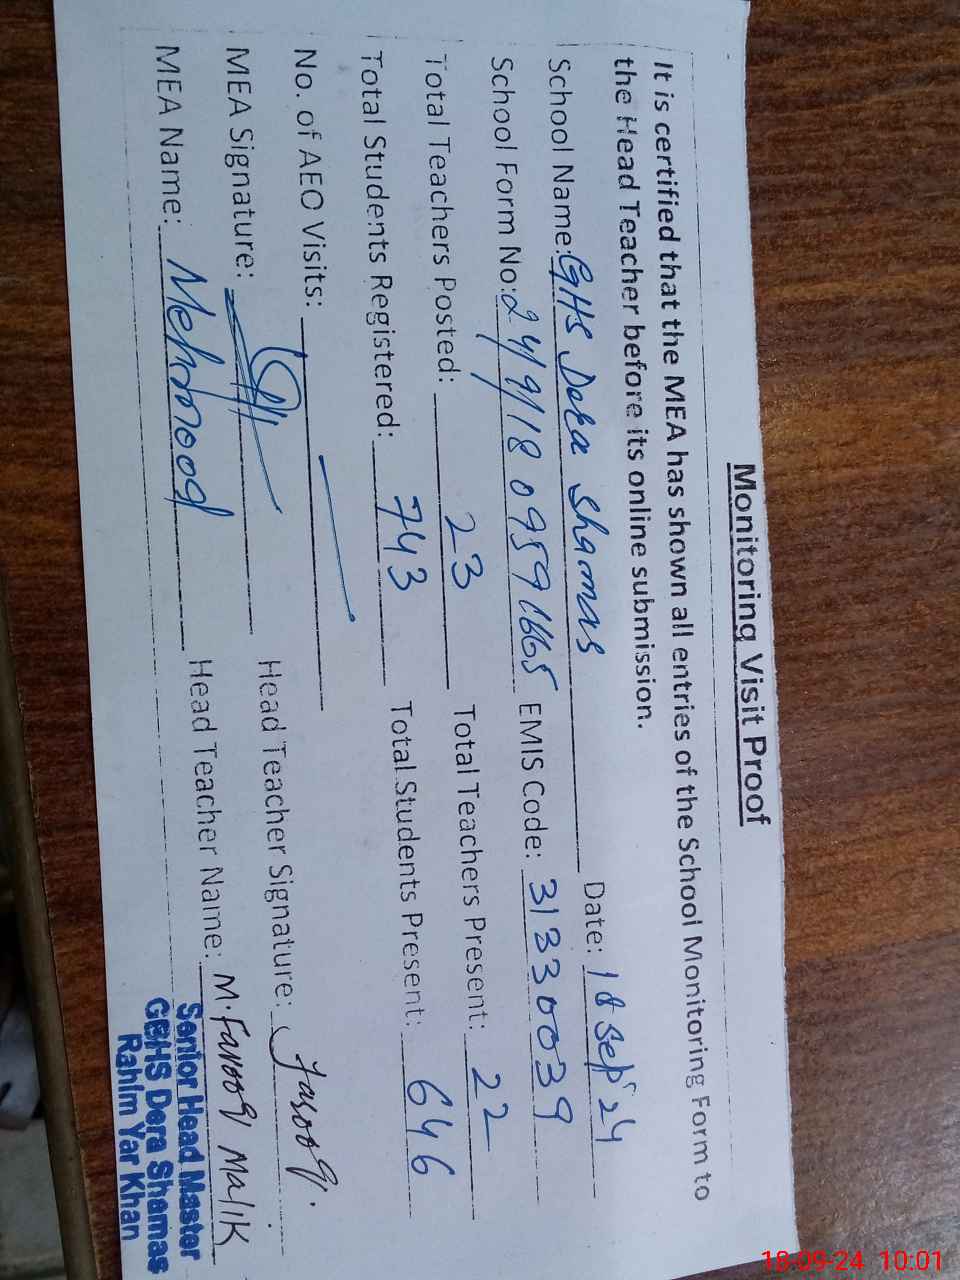 Monitoring Visit Proof
It is certified that the MEA has shown all entries of the School Monitoring Form to
the Head Teacher before its online submission.
School Name: GHS Dera Shamas Date: 18 Sep 24
School Form No: EMIS Code: 31330039
Total Teachers Posted: 23 Total Teachers Present: 22
Total Students Registered: 743 Total Students Present: 646
No. of AEO Visits: —
MEA Signature: Head Teacher Signature: Farooq.
MEA Name: Mehmood Head Teacher Name: M. Farooq Malik
Senior Head Master
GBHS Dera Shamas
Rahim Yar Khan
18-09-24 10:01